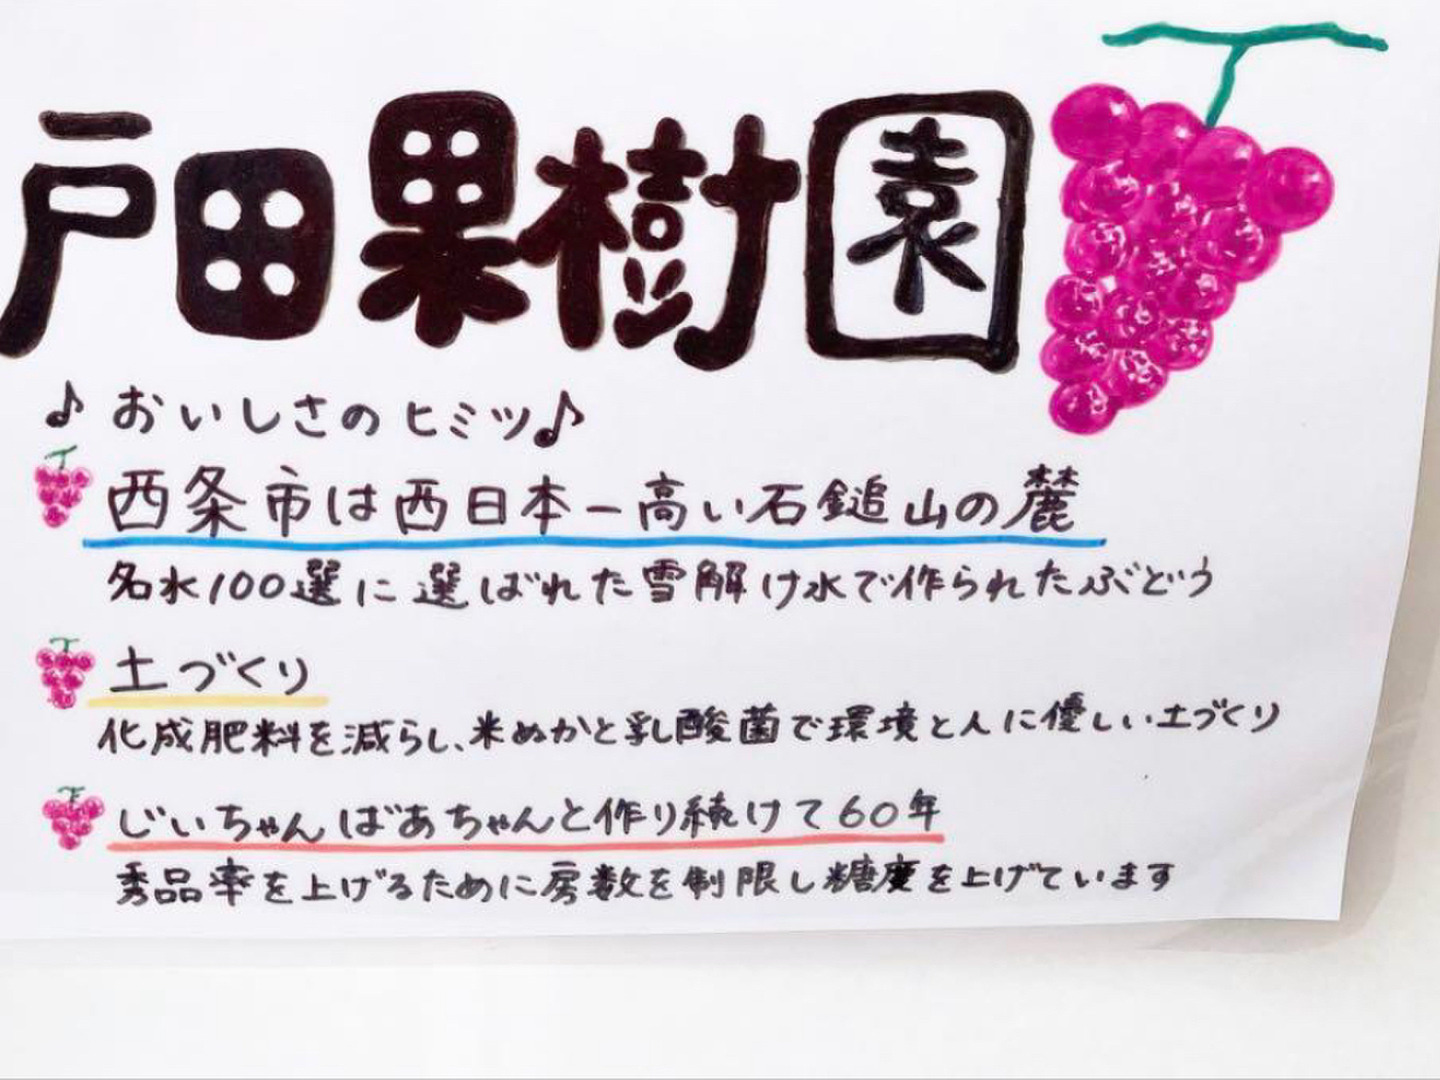 戸田果樹園
♪おいしさのヒミツ♪
西条市は西日本一高い石鎚山の麓
名水100選に選ばれた雪解け水で作られたぶどう
土づくり
化成肥料を減らし、米ぬかと乳酸菌で環境と人に優しい土づくり
じいちゃんばあちゃんと作り続けて60年
秀品率を上げるために房数を制限し糖度を上げています